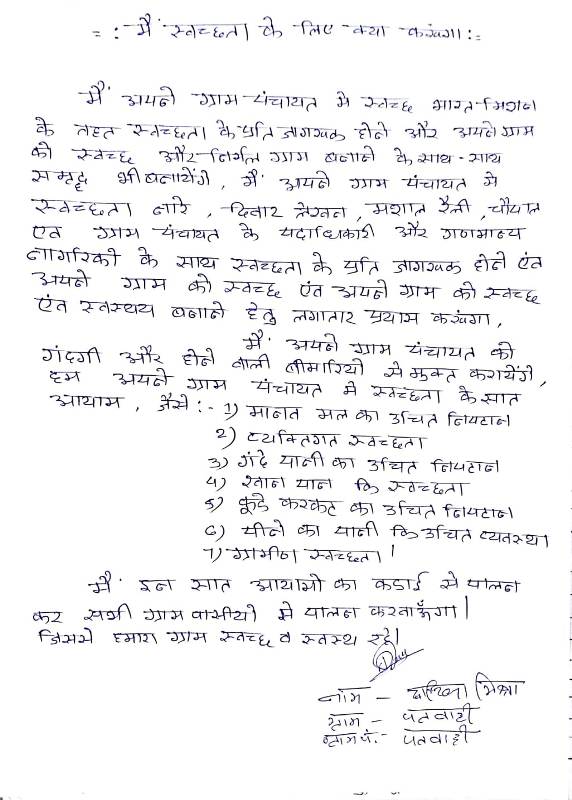 =:- मैं स्वच्छता के लिए क्या करूंगा:=
मैं अपने ग्राम पंचायत मे स्वच्छ भारत-मिशन
के तहत स्वच्छता के प्रति जागरूक होने और अपने ग्राम
को स्वच्छ और निर्मल ग्राम बनाने के साथ-साथ
समृद्द भी बनायेंगे, मैं अपने ग्राम पंचायत मे
स्वच्छता नारे, दिवार लेखन, मशाल रैली, चौपाल
एवं ग्राम पंचायत के पदाधिकारी और गणमान्य
नागरिको के साथ स्वच्छता के प्रति जागरूक होने एंव
अपने ग्राम को स्वच्छ एंव अपने ग्राम को स्वच्छ
एंव स्वस्थय बनाने हेतु लगातार प्रयास करूंगा,
मैं अपने ग्राम पंचायत को
गंदगी और होने वाली बीमारियो से मुक्त करायेंगे,
हम अपने ग्राम पंचायत मे स्वच्छता के सात
आयाम, जैसे:- 1) मानव मल का उचित निपटान
2) व्यक्तिगत स्वच्छता
3) गंदे पानी का उचित निपटान
4) खान पान कि स्वच्छता
5) कूडे करकट का उचित निपटान
6) पीने का पानी कि उचित व्यवस्था
7) ग्रामीण स्वच्छता।
मैं इन सात आयामो का कडाई से पालन
कर सभी ग्राम वासीयो से पालन करवाऊँगा।
जिससे हमारा ग्राम स्वच्छ व स्वस्थ रहे।
नाम - मिश्रा
ग्राम - पतवाही
ग्राम पं.- पतवाही